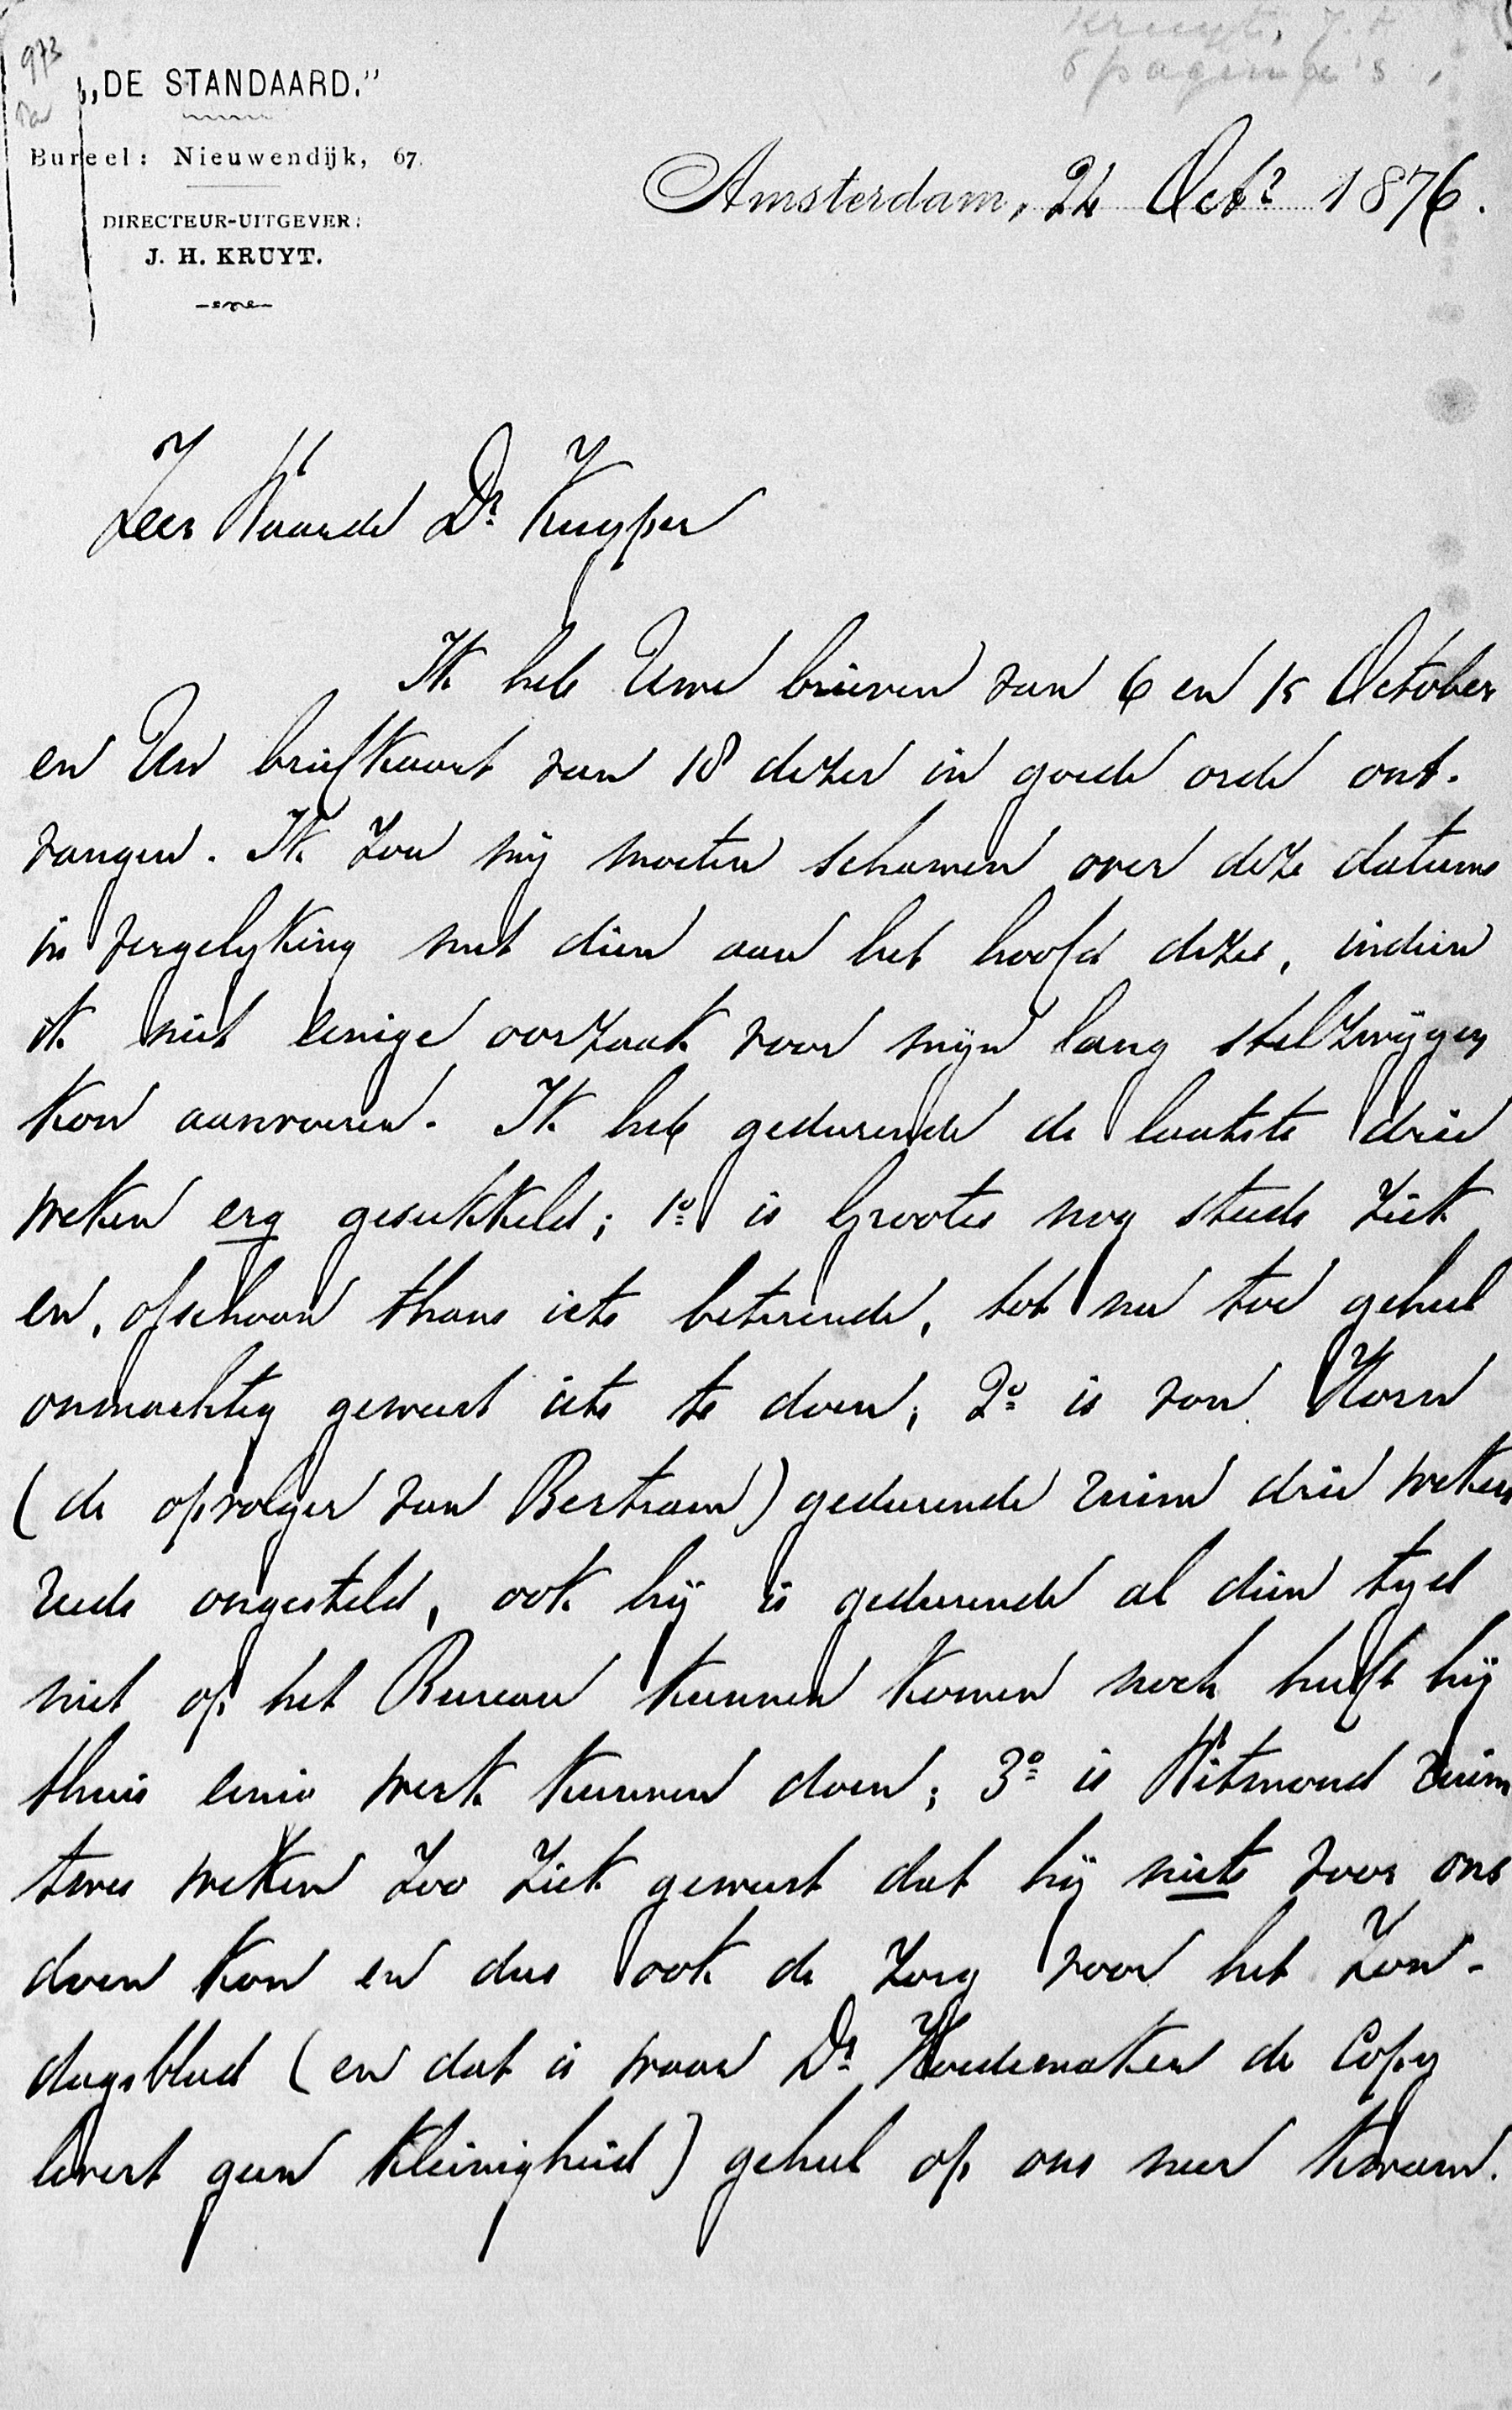 973
Kruyt, J. H
6 pagina's
„DE STANDAARD.”
Bureel: Nieuwendijk, 67.
DIRECTEUR-UITGEVER:
J. H. KRUYT.
Amsterdam, 24 Octr 1876.
Zeer Waarde Dr. Kuyper
Ik heb Uwe brieven van 6 en 15 October
en Uw briefkaart van 18 dezer in goede orde ont-
vangen. Ik zou mij moeten schamen over deze datums
in vergelyking met dien aan het hoofd dezes, indien
ik niet eenige oorzaak voor mijn lang stilzwijgen
kon aanvoeren. Ik heb gedurende de laatste drie
weken erg gesukkeld; 1o is Grootes nog steeds ziek
en, ofschoon thans iets beterende, tot nu toe geheel
onmachtig geweest iets te doen; 2o is van Horn
(de opvolger van Bertram) gedurende ruim drie weken
reeds ongesteld, ook hij is gedurende al dien tyd
niet op het Bureau kunnen komen noch heeft hij
thuis eenig werk kunnen doen; 3o is Witmond ruim
twee weken zoo ziek geweest dat hij niets voor ons
doen kon en dus ook de zorg voor het Zon-
dagsblad (en dat is waar Dr. Hoedemaker de Copy
levert geen kleinigheid) geheel op ons neer kwam.